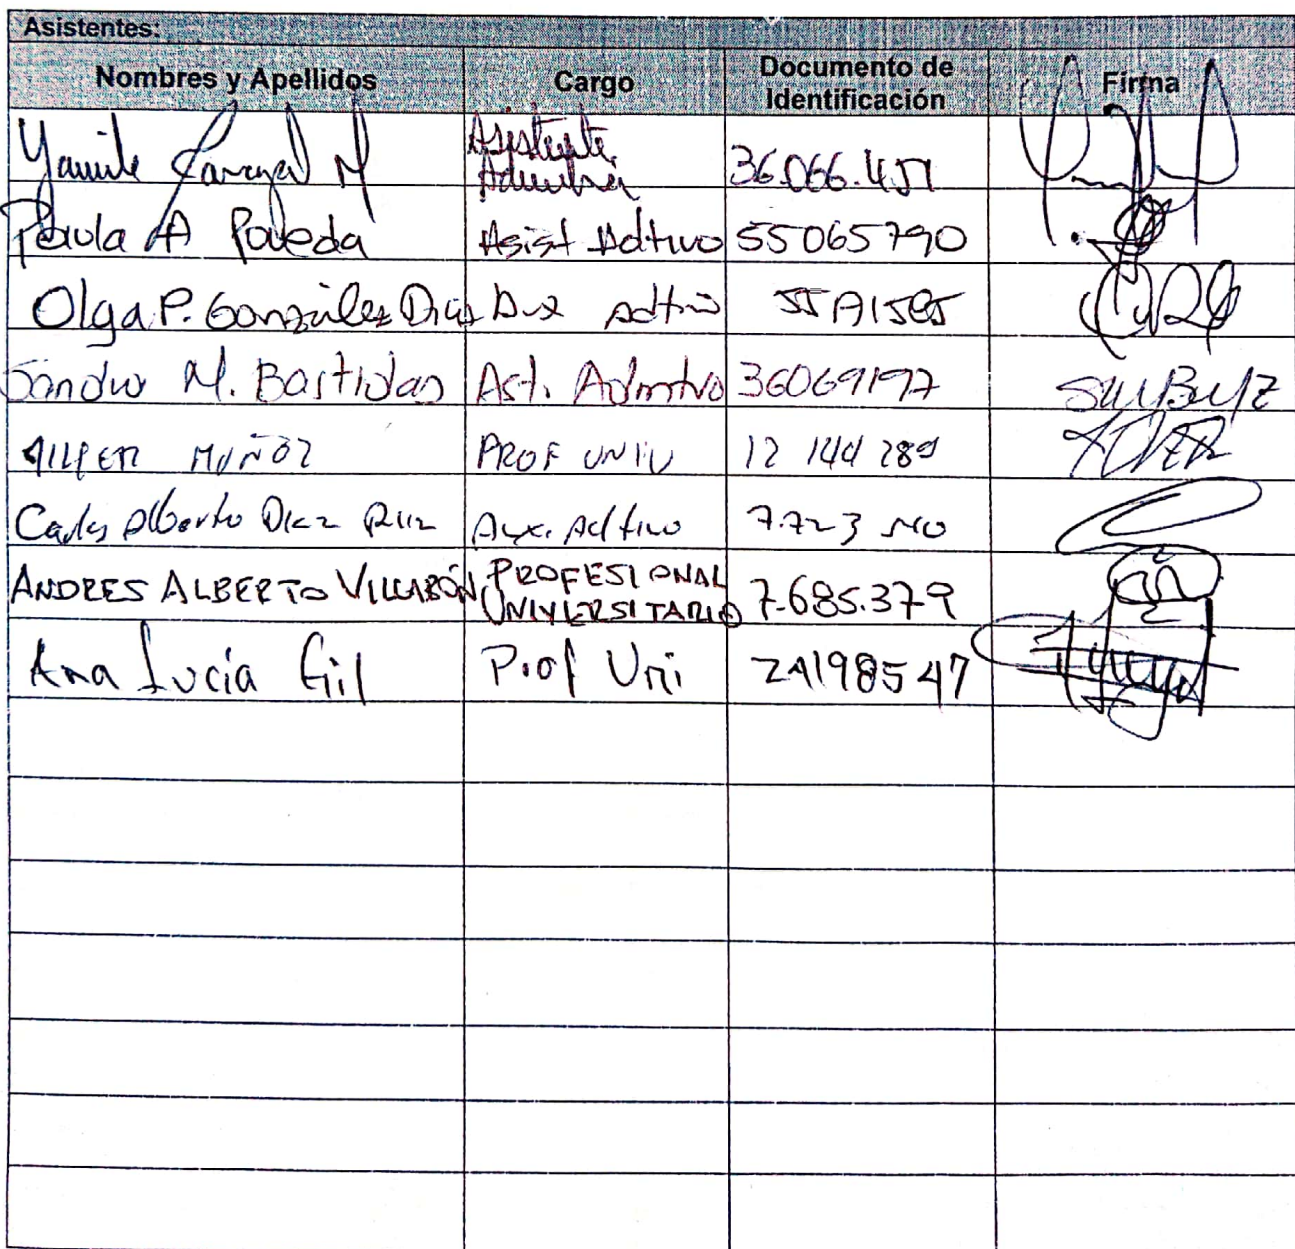 Asistentes:
Nombres y Apellidos Cargo Documento de Identificación Firma
Yamile Carvajal M Asistente 36.066.451
Paula A Poveda Asist Adtivo 55065790
Olga P. González Díaz Aux Adtivo
Sandra M. Bastidas Ast. Admtvo 36069197
MUÑOZ PROF UNIV 12 144 289
Carlos Alberto Diaz Ruiz Aux. Adtivo 7.723
ANDRES ALBERTO VILLABÓN PROFESIONAL UNIVERSITARIO 7.685.379
Ana Lucía Gil Prof Uni